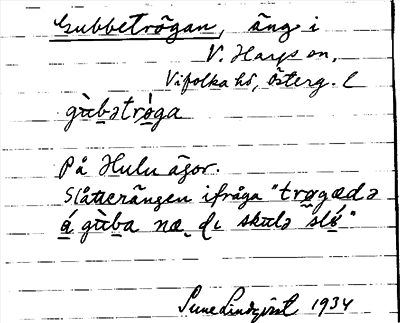 Gubbetrögan, äng i
V. Harg sn,
Vifolka hd, Österg. l
gù̱ba̱trò̱ga
På Hulu ägor.
Slåtterängen ifråga "trøgædə
á̱ gùba næ di skulə slǿ"
Sune Lindqvist 1934